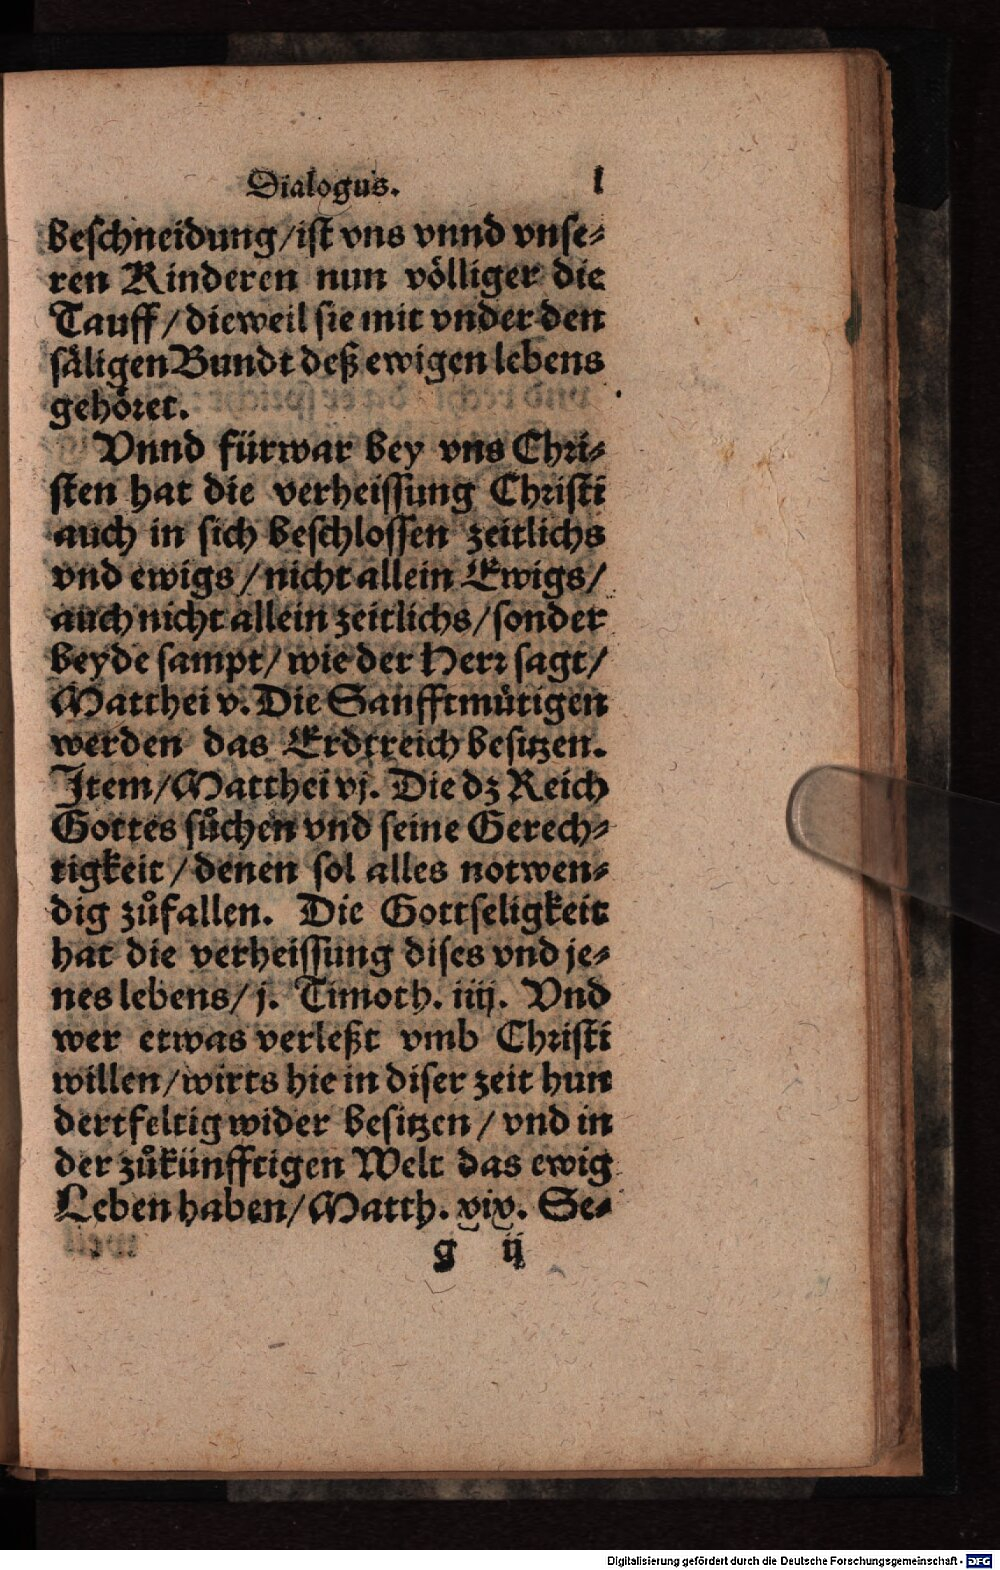 Dialogus. l
beschneidung/ist vns vnnd vnse⸗
ren Kinderen nun völliger die
Tauff/dieweil sie mit vnder den
säligen Bundt deß ewigen lebens
gehöret.
Vnnd fürwar bey vns Chri⸗
sten hat die verheissung Christi
auch in sich beschlossen zeitlichs
vnd ewigs/nicht allein Ewigs/
auch nicht allein zeitlichs/sonder
beyde sampt/wie der Herr sagt/
Matthei v. Die Sanfftmütigen
werden das Erdtreich besitzen.
Item/Matthei vj. Die dz Reich
Gottes sůchen vnd seine Gerech⸗
tigkeit/denen sol alles notwen⸗
dig zůfallen. Die Gottseligkeit
hat die verheissung dises vnd je⸗
nes lebens/j. Timoth. iiij. Vnd
wer etwas verleßt vmb Christi
willen/wirts hie in diser zeit hun
dertfeltig wider besitzen/vnd in
der zůkünfftigen Welt das ewig
Leben haben/Matth. xix. Se⸗
g ij
Digitalisierung gefördert durch die Deutsche Forschungsgemeinschaft - DFG